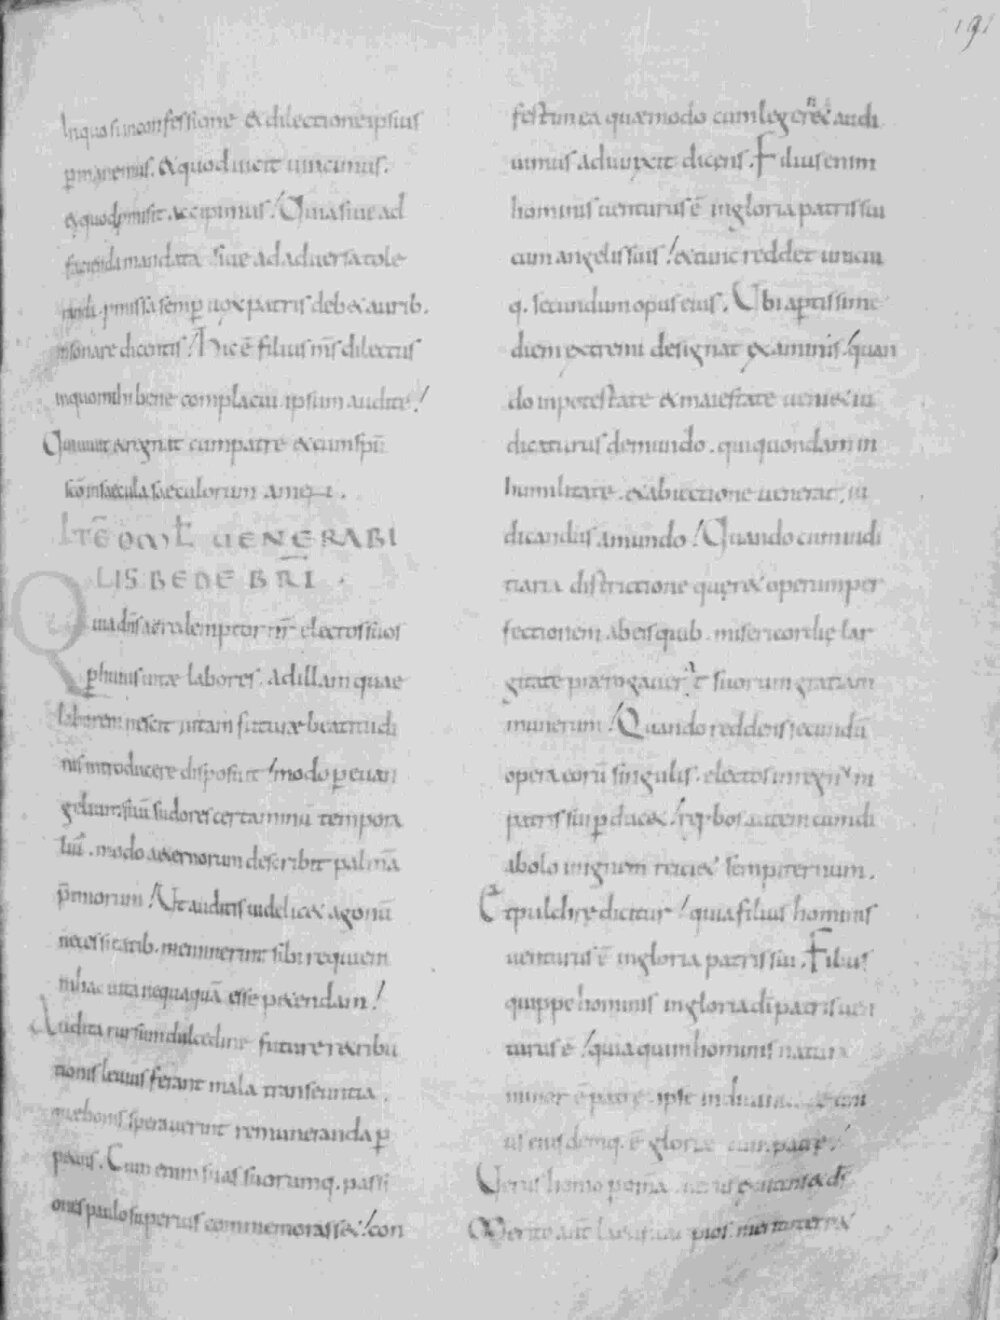 191
In quo si in confessione & dilectione ipsius
permanemus. & quod iucit uincimus.
& quod promisit accipimus. Quia siue ad
facienda mandata siue ad aduersa tole
randa promissa semper uox patris deb& aurib.
insonare dicentis. Hic ē filius mš dilectus
in quo mihi bene complacui ipsum audite.
Qui uiuit & regnat cum patre & cum spū
sc̄o in saecula saeculorum amen.
ITĒ OML VENERABI
LIS BEDE BR̄I.
Quia dn̄s ac redemptor nr̄ electos suos
per huius uitae labores. ad illam quae
laborem nescit uitam futurae beatitudi
nis introducere disposuit modo per euan
gelium suū sudores certaminū tempora
liū. modo aeternorum describit palmā
p̄miorum. Ut auditis uidelic& agonū
necessitatib. meminerint sibi requiem
in hac uita nequaquā esse p&endam.
Audita rursum dulcedine future r&ribu
tionis leuius ferant mala transeuntia.
quae bonis sperauerint remuneranda per
petuis. Cum enim suas suorumq. passi
ones paulo superius commemorass&. con
festim ea quae modo cum leger& audi
uimus adiunxit dicens. Filius enim
hominis uenturus ē in gloria patris sui
cum angelis suis. & tunc reddet unicui
q. secundum opus eius. Ubi aptissime
diem extremi designat examinis. quan
do in potestate & maiestate ueni& iu
dicaturus de mundo. qui quondam in
humilitate & abiectione uenerat iu
dicandus a mundo. Quando cum iudi
tiaria districtione quer& operum per
fectionem ab eis quib. misericordię lar
gitate praerogauerat suorum gratiam
munerum. Quando reddens secundū
opera eorū singulis. electos in regnum
patris sui perduc&. reprobos autem cum di
abolo in ignem reici& sempiternum.
Et pulchre dicitur. quia filius hominis
uenturus ē in gloria patris sui. Filius
quippe hominis in gloria di patris uen
turus ē. quia qui in hominis natura
minor ē patre ipse in diuina
eiusdemq. ē glorie cum patre.
Uerus homo
Merito aut̄ pios